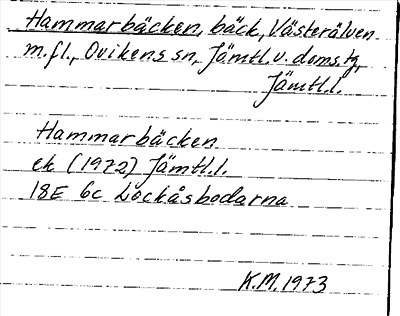 Hammarbäcken, bäck, Västerälven
m.fl., Ovikens sn, Jämtl.v. doms.tg,
Jämtl.l.
Hammarbäcken
ek (1972) Jämtl.l.
18E 6c Löckåsbodarna
K.M. 1973